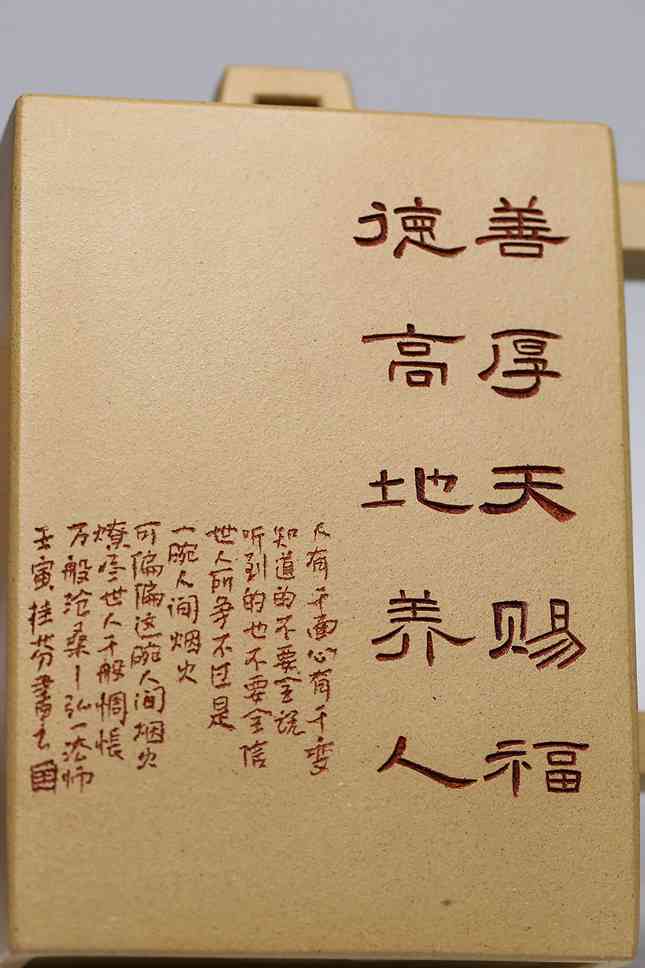 善厚天赐福
德高地养人
人有千面心有千变
知道的不要全说
听到的也不要全信
世人所争不过是
一碗人间烟火
可偏偏这碗人间烟火
燎尽世人千般惆怅
万般沧桑—弘一法师
壬寅桂芬書